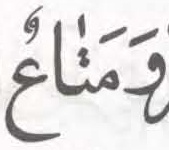 وَمَتَٰاعٌ